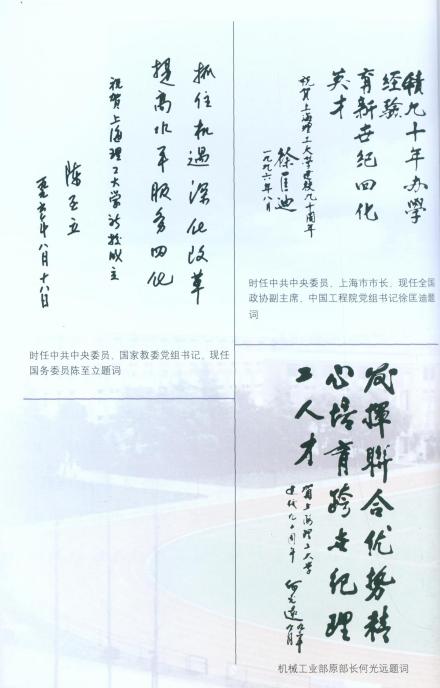 積九十年办学
经验
育新世纪四化
英才
祝贺上海理工大学建校九十周年
徐匡迪
一九九六年八月
时任中共中央委员、上海市市长、现任全国
政协副主席、中国工程院党组书记徐匡迪题
词
抓住机遇深化改革
提高水平服务四化
祝贺上海理工大学新校成立
陈至立
八月十八日
时任中共中央委员、国家教委党组书记、现任
国务委员陈至立题词
发揮聯合优势精
心培育跨世纪理
工人才
贺上海理工大学
建校九十周年
何光远
机械工业部原部长何光远题词